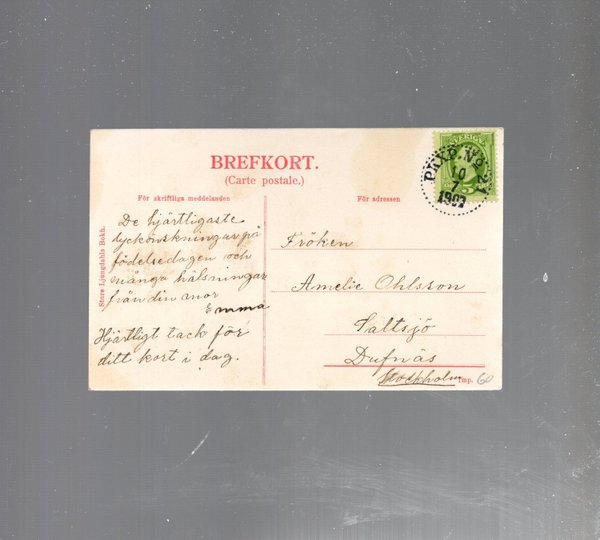 BREFKORT.
(Carte postale.)
För skriftliga meddelanden
För adressen
SVERIGE
5
PKXP. No 21
10
7
1907
De hjärtligaste
lyckönskningar på
födelsedagen och
många hälsningar
från din mor
Emma
Hjärtligt tack för
ditt kort i dag.
Fröken
Amelie Ohlsson
Saltsjö
Dufnäs
Stockholm
Imp.
60
Store Ljungdahls Bokh.